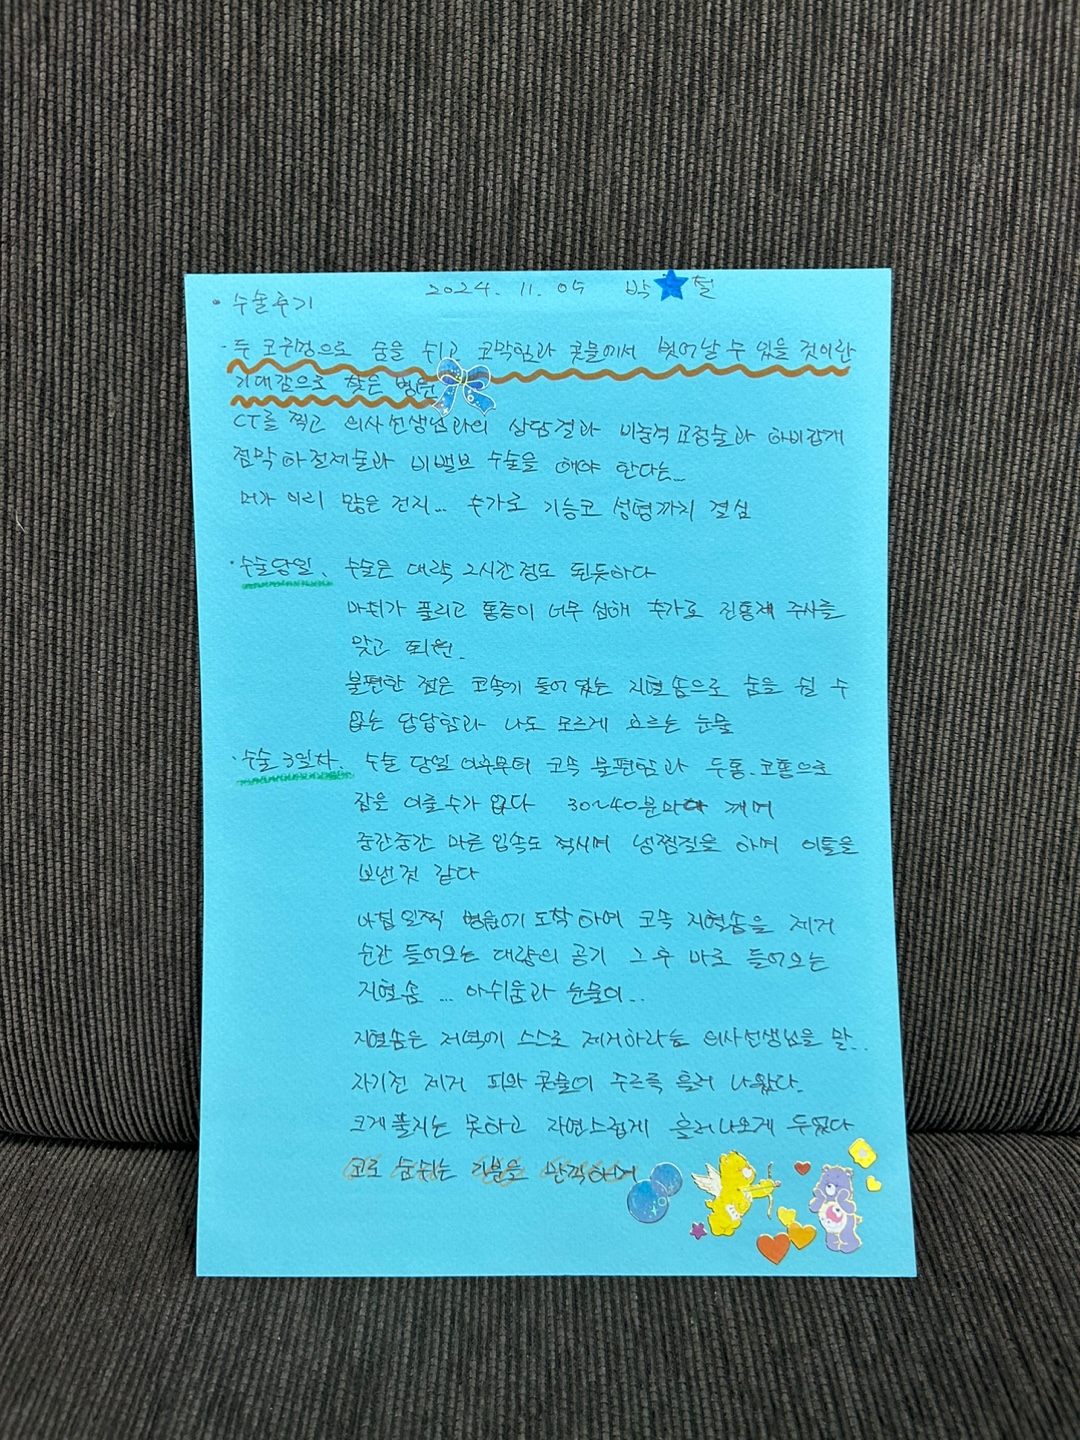 2024. 11. 05 박 철
• 수술후기
· 두 코구멍으로 숨을 쉬고 코막힘과 콧물에서 벗어날 수 있을 것이란
기대감으로 찾은 병원
CT를 찍고 의사선생님과의 상담결과 비중격교정술과 하비갑개
점막하절제술과 비밸브 수술을 해야 한다는...
머가 이리 많은 건지... 추가로 기능코 성형까지 결심
· 수술당일. 수술은 대략 2시간정도 된듯하다
마취가 풀리고 통증이 너무 심해 추가로 진통제 주사를
맞고 퇴원.
불편한 점은 코속에 들어 있는 지혈솜으로 숨을 쉴 수
없는 답답함과 나도 모르게 흐르는 눈물
· 수술 3일차. 수술 당일 이후부터 코속 불편함과 두통.코통으로
잠을 이룰수가 없다 30~40분마다 깨며
중간중간 마른 입속도 적시며 냉찜질을 하며 이틀을
보낸것 같다
아침 일찍 병원에 도착하여 코속 지혈솜을 제거
순간 들어오는 대량의 공기 그 후 바로 들어오는
지혈솜 ... 아쉬움과 눈물이..
지혈솜은 저녁에 스스로 제거하라는 의사선생님을 말..
자기전 제거 피와 콧물이 주르륵 흘러 나왔다.
크게풀지는 못하고 자연스럽게 흘러나오게 두었다
코로 숨쉬는 기분을 만끽하며